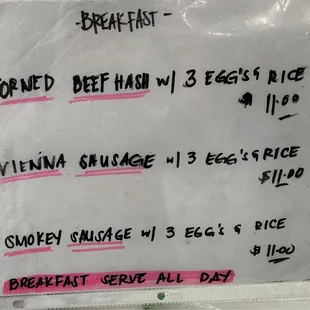 -BREAKFAST-
ORNED BEEF HASH w/ 3 EGG'S & RICE
$ 11.00
VIENNA SAUSAGE w/ 3 EGG'S & RICE
$11.00
SMOKEY SAUSAGE w/ 3 EGG'S & RICE
$11.00
BREAKFAST SERVE ALL DAY